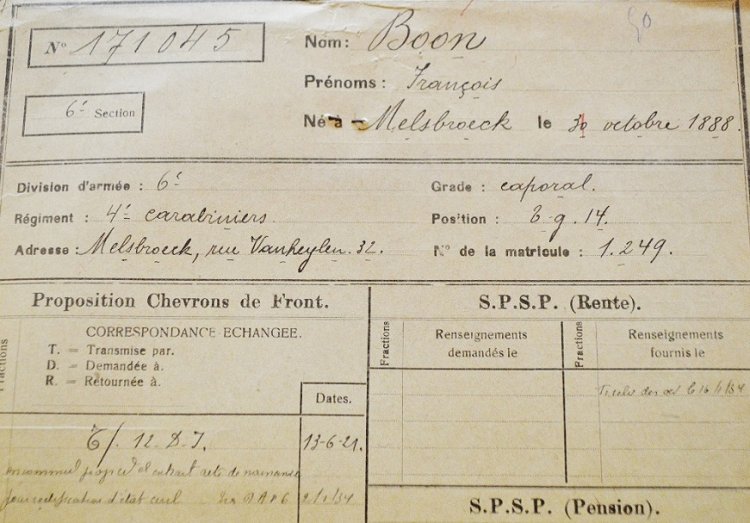 50
N° 171045
Nom: Boon
Prénoms: François
6e Section
Né à Melsbroeck le 30 octobre 1888.
Division d'armée : 6e
Grade : caporal.
Régiment : 4e carabiniers.
Position : 2-9.14.
Adresse : Melsbroeck, rue Vanheylen 32.
N° de la matricule : 1.249.
Proposition Chevrons de Front.
S.P.S.P. (Rente).
Fractions
CORRESPONDANCE ECHANGEE.
T. = Transmise par.
D. = Demandée à.
R. = Retournée à.
Dates.
Fractions
Renseignements
demandés le
Fractions
Renseignements
fournis le
T/ 12 D.I.
13-6-21.
extrait acte de naissance
pour rectification d'état civil
S.P.S.P. (Pension).